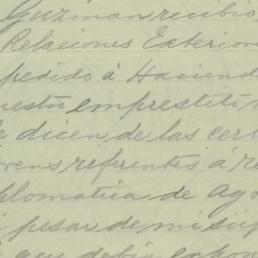 Guzman recibio
Relaciones Exterior
pedido á Haciend
nestro emprestito
e dicen de las cer
rens referentes á re
plomatica de Ago
pesar de mi sup
que debia expon